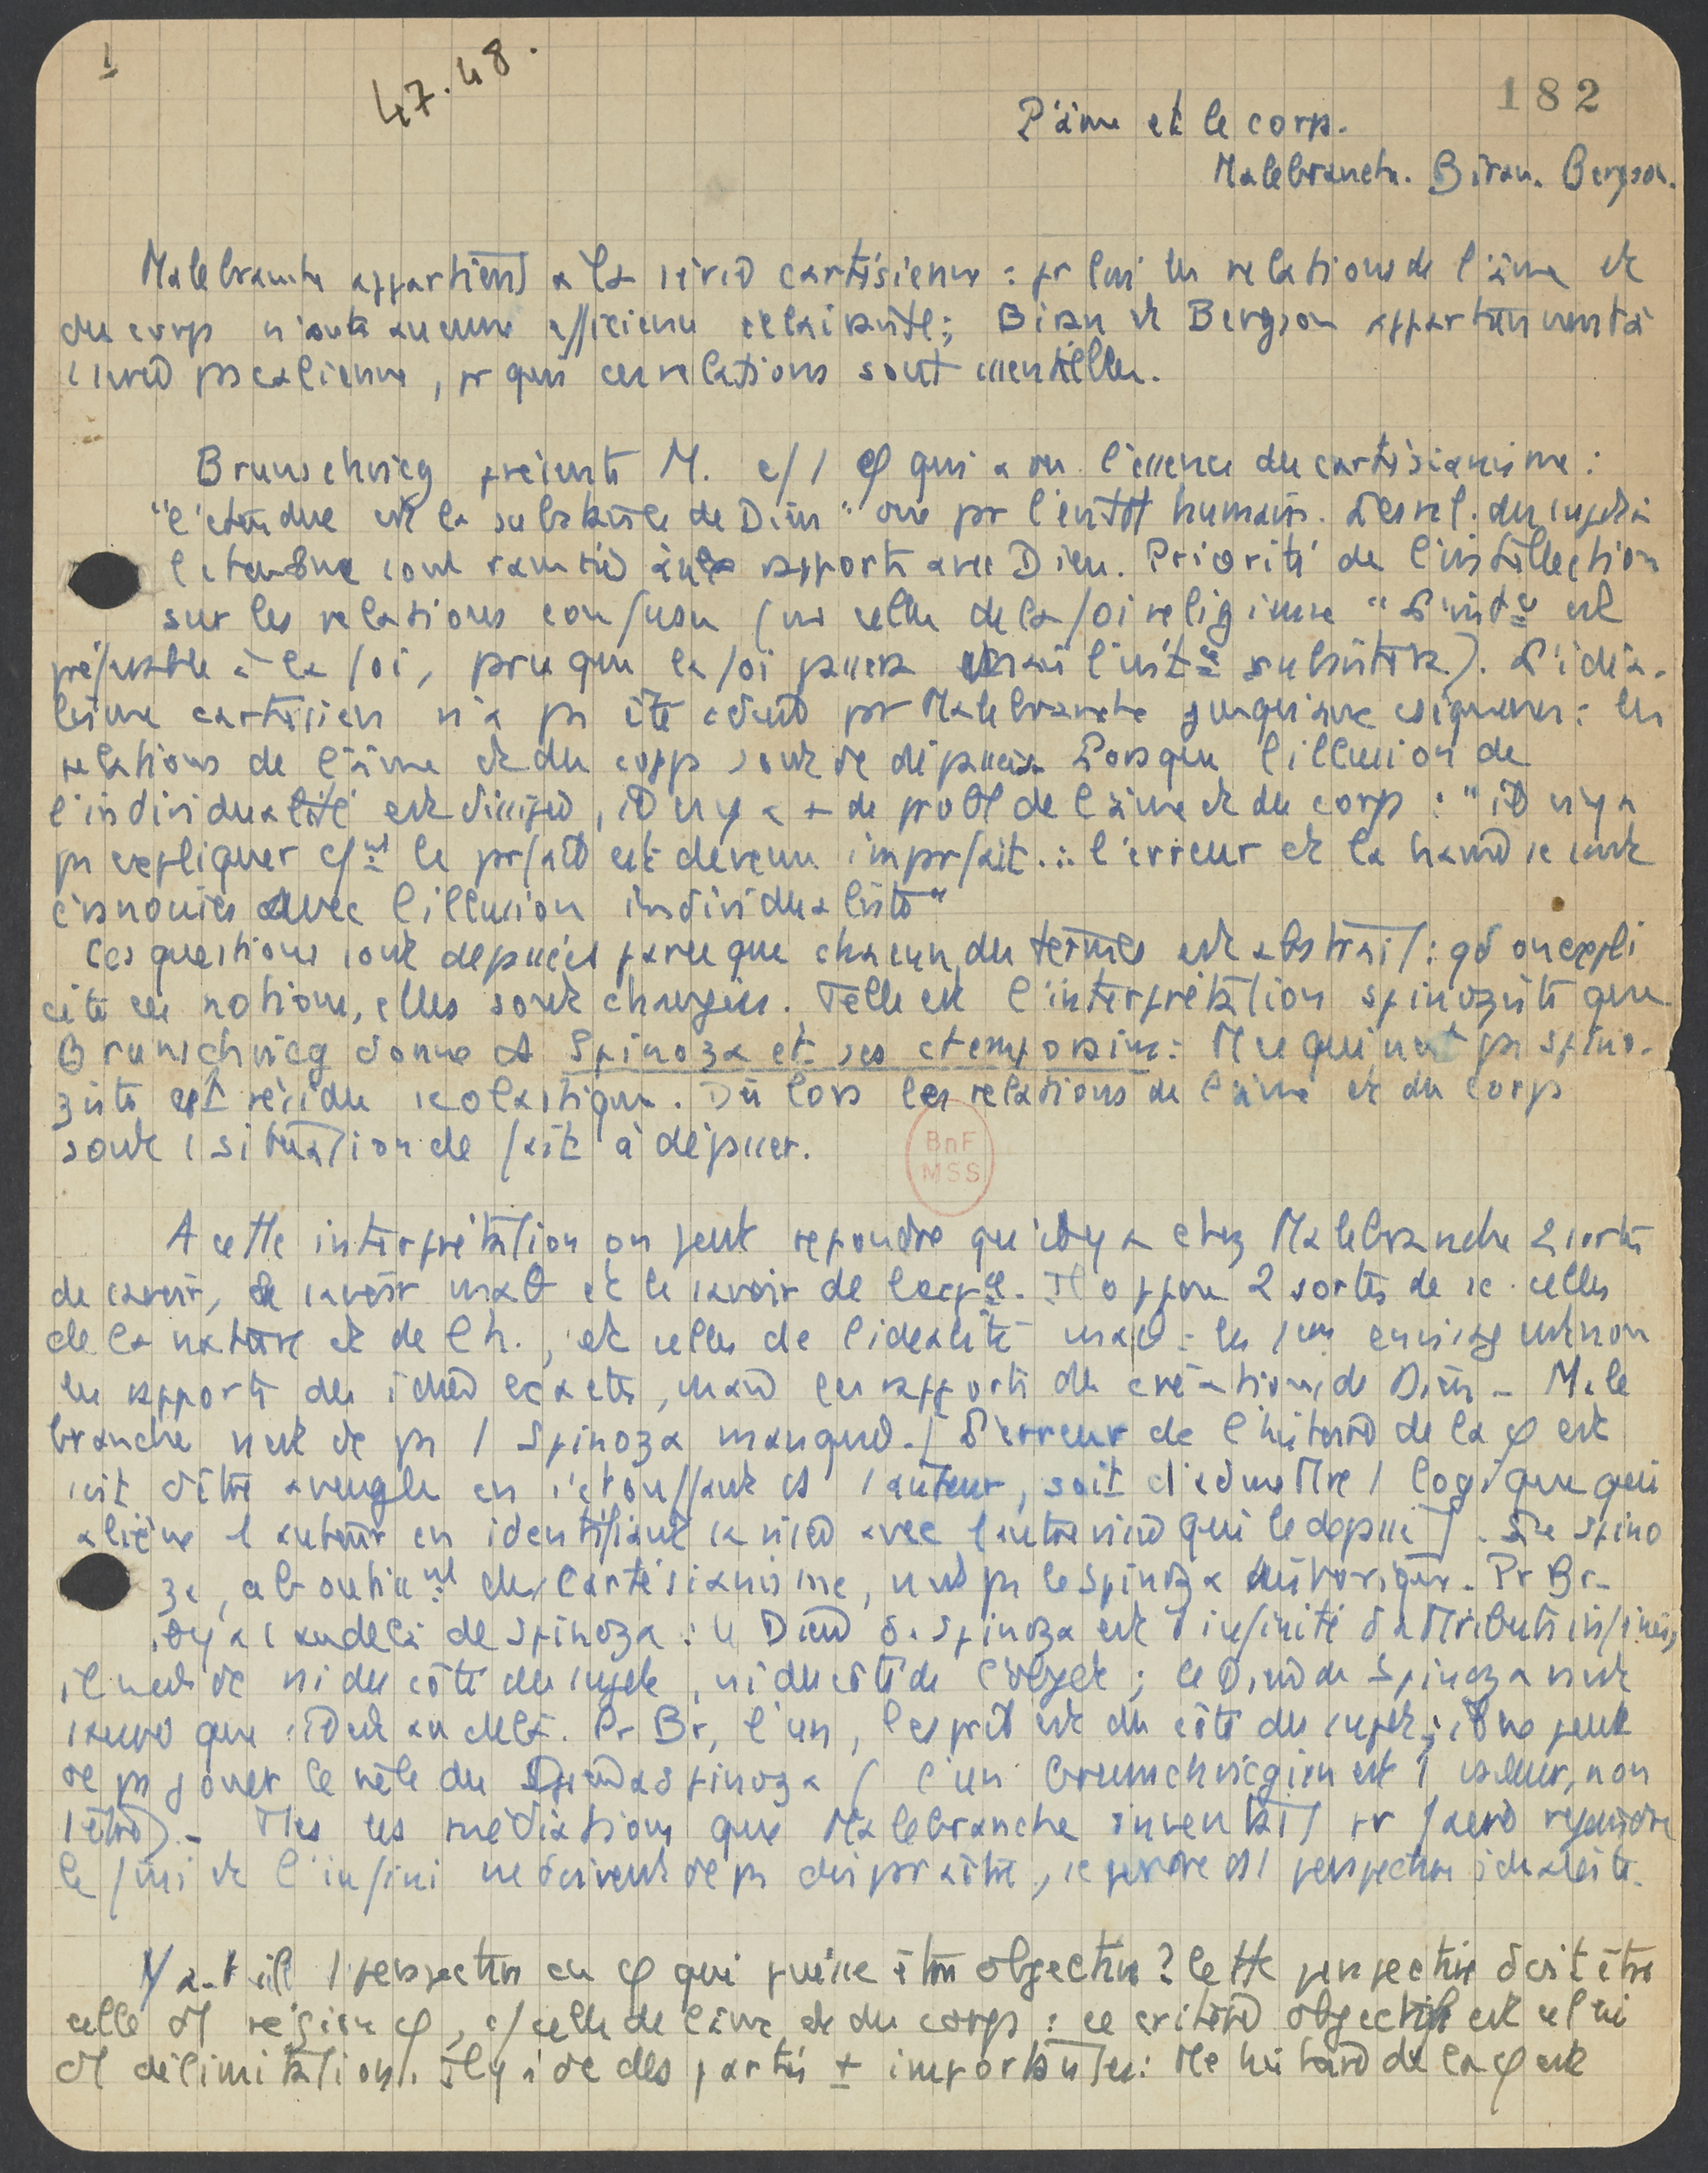 1
47.48.
182
L'âme et le corps.
Malebranche. Biran. Bergson.
Malebranche appartient à la série cartésienne : pr lui les relations de l'âme et
du corps n'ont aucune efficience éclairante; Biran et Bergson appartiennent à
1 série pascalienne, pr qui ces relations sont essentielles.
Brunschvicg présente M. c/ 1 φ qui a vu l'essence du cartésianisme :
"l'étendue est la substance de Dieu" vue par l'entdt humain. Les rel. du sujet à
l'étendue sont ramenées à ses rapports avec Dieu. Priorité de l'intellection
sur les relations confuses (ex celle de la foi religieuse "L'intce est
préférable à la foi, parce que la foi passera mais l'intce subsistera). L'idéa-
lisme cartésien n'a pas été conduit par Malebranche jusqu'aux : les
relations de l'âme et du corps sont dc dépassées Lorsque l'illusion de
l'individualité est dissipée, il n'y a + de probl de l'âme et du corps : "il n'y a
pas à expliquer cmt le parfait est devenu imparfait .. : l'erreur et la se sont
évanouies avec l'illusion individualiste"
Ces questions sont dépassées parce que chacun des termes est abstrait : qd on expli
cite ces notions, elles sont changées. Telle est l'interprétation spinoziste que
Brunschvicg donne ds Spinoza et ses ctemporains : Tt ce qui n'est pas spino-
ziste est résidu scolastique. Dès lors les relations de l'âme et du corps
sont 1 situation de fait à dépasser.
BnF
MSS
A cette interprétation on peut répondre qu'il y a chez Malebranche 2 sortes
de savoir, le savoir mat et le savoir de l'expce. Il oppose 2 sortes de sc. celles
de la nature et de l'h., et celles de l'idéalité mat : les 1ères envisagent non
les rapports des idées exactes, mais les rapports des créations de Dieu - Male
branche n'est dc pas 1 Spinoza manqué. [L'erreur de l'histoire de la φ est
soit d'être aveugle en s'étouffant ds 1 auteur, soit d'admettre 1 logique qui
aliène l'auteur en identifiant sa visée avec l'autre visée qui le dépasse]. Le Spino
za, aboutissmt du Cartésianisme, n'est pas le Spinoza historique. Pr Br-
il y a 1 au-delà de Spinoza : le Dieu de Spinoza est 1 infinité d'attributs infinis,
il n'est dc ni du côté du sujet, ni du côté de l'objet; le Dieu de Spinoza n'est
sauvé que s'il est au-delà. Pr Br, l'un, l'esprit est du côté du sujet; il ne peut
dc pas jouer le rôle du Dieu de Spinoza (l'un brunschvicgien est 1 valeur, non
1 être). - Ttes les médiations que Malebranche inventait pr faire rejoindre
le fini et l'infini ne doivent dc pas disparaître, se perdre ds 1 perspective idéaliste.
Y a-t-il 1 perspective en φ qui puisse être objective? Cette perspective doit être
celle d'1 région φ, c/ celle de l'âme et du corps : ce critère objectif est celui
d'1 délimitation. Il y a dc des parties + importantes : tte histoire de la φ est